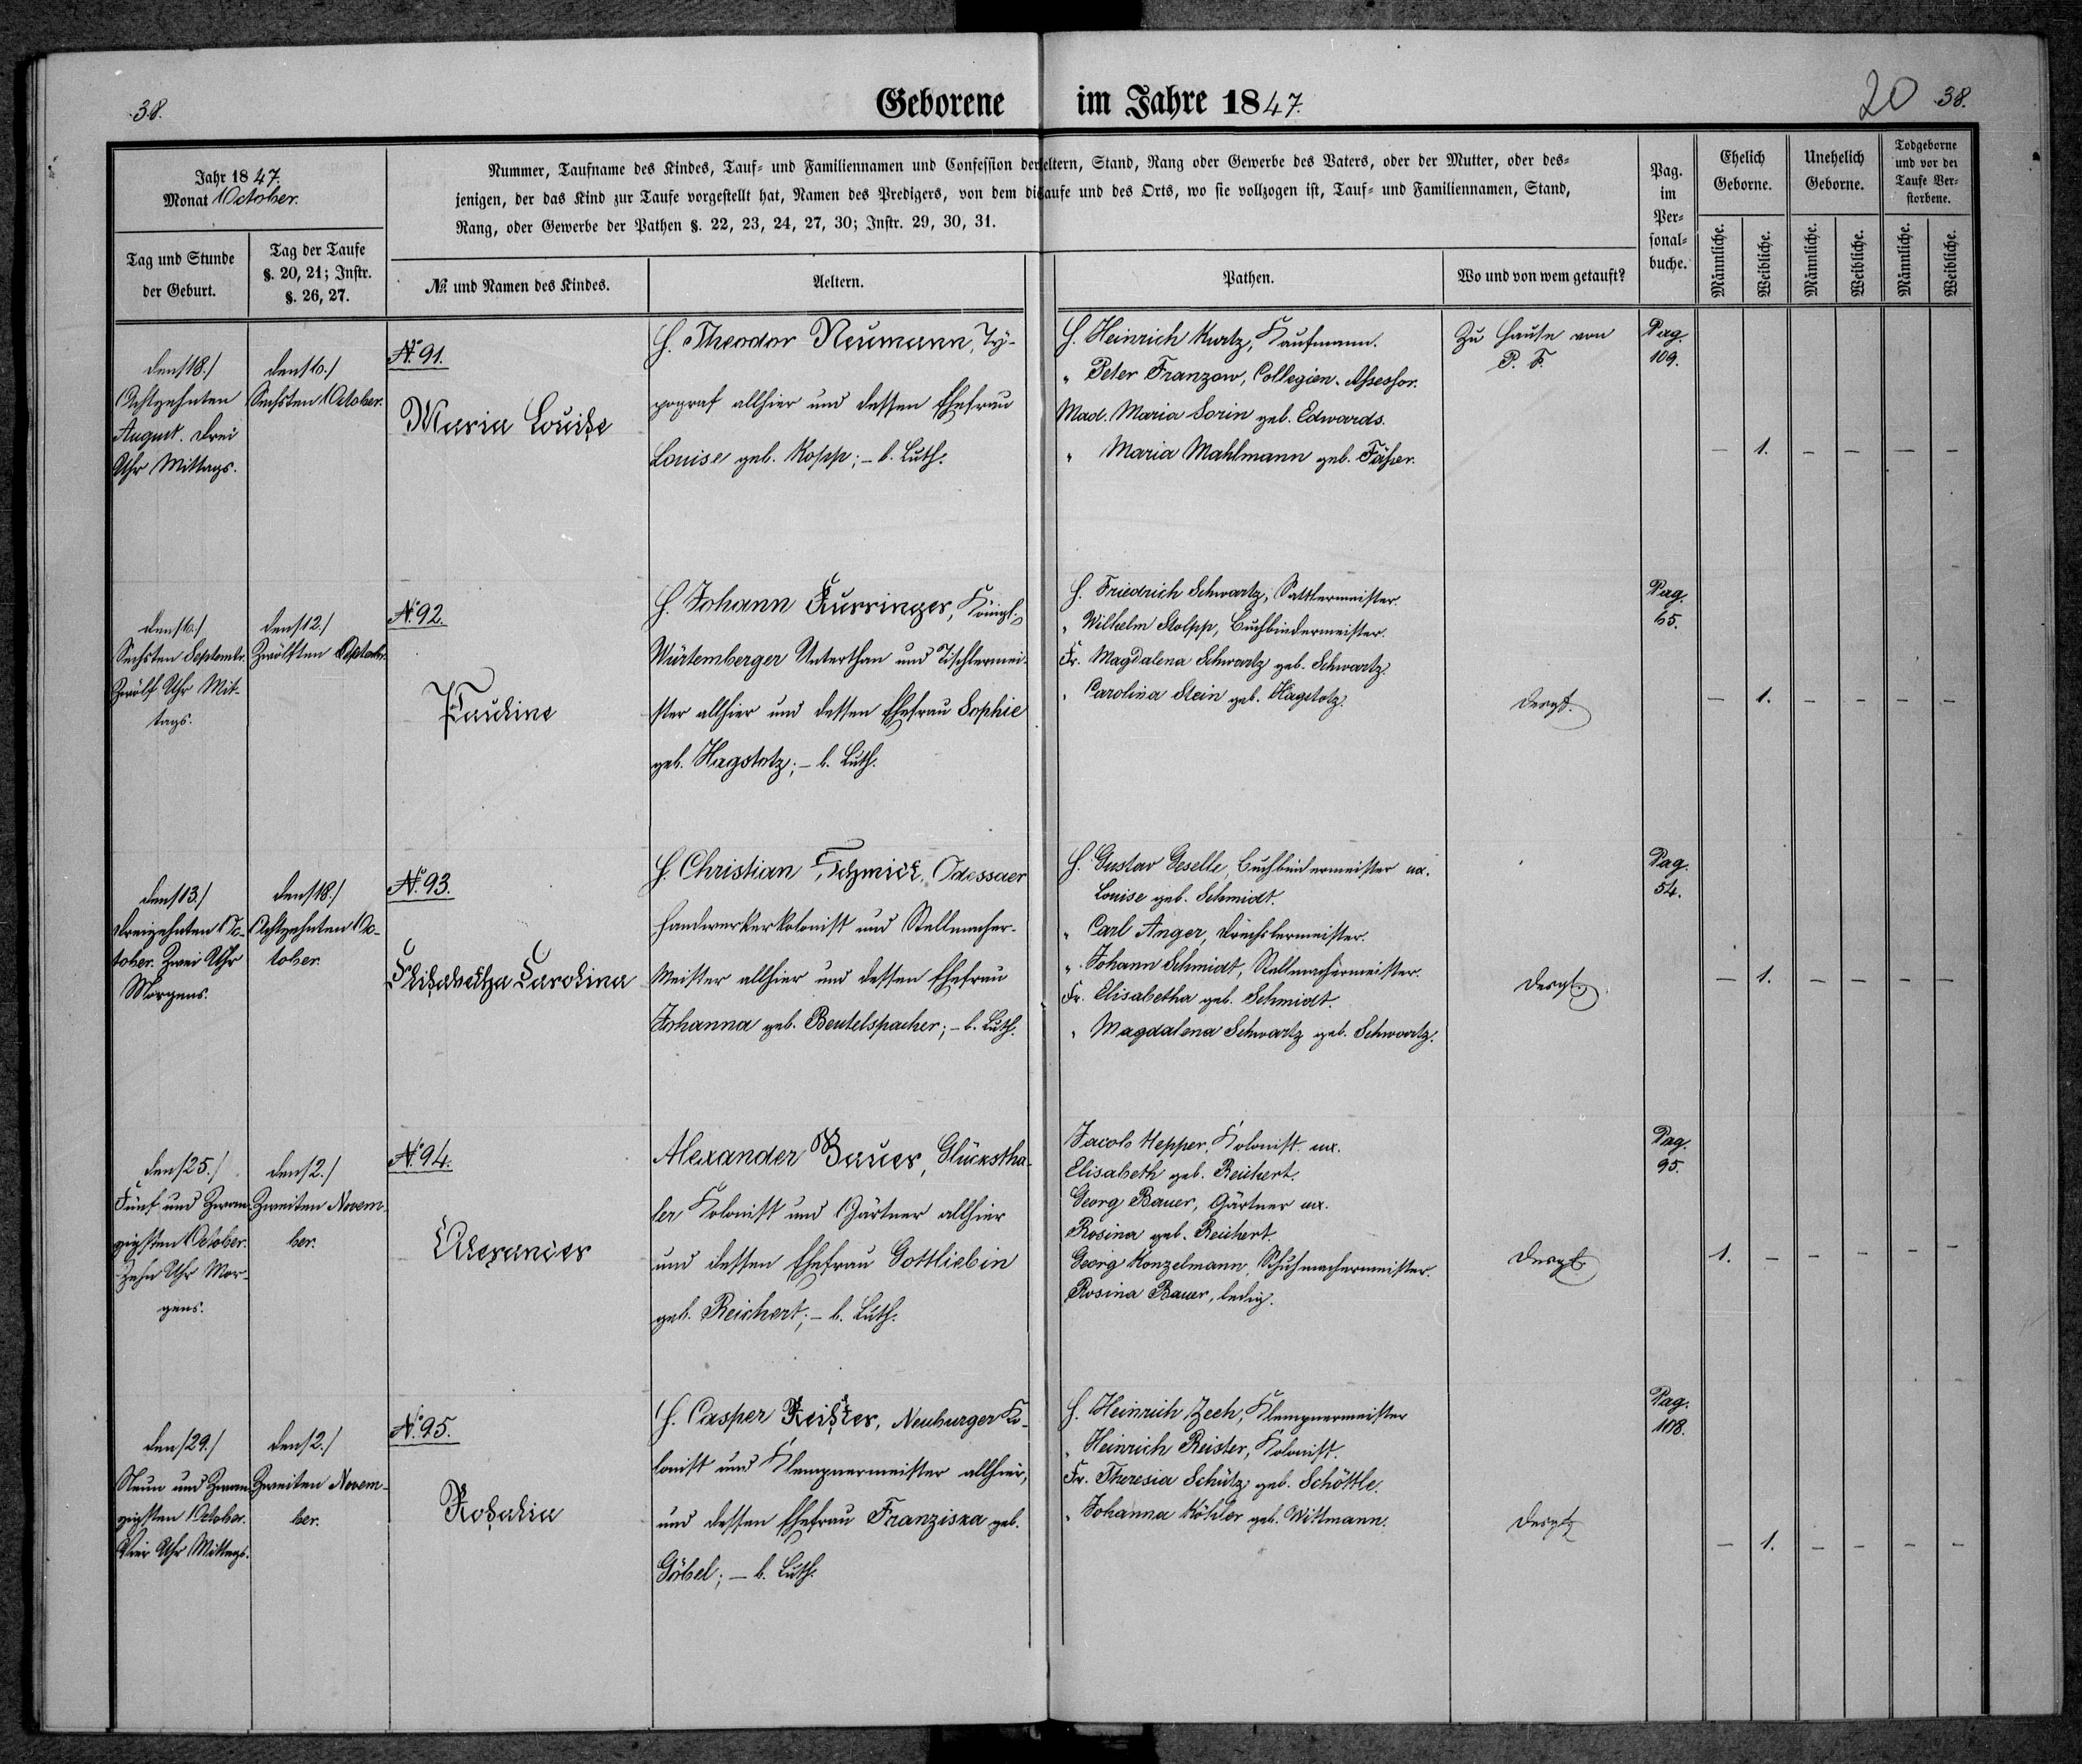 38.
Geborene im Jahre 1847.
20 38.
Jahr 1847.
Monat October.
Nummer, Taufname des Kindes, Tauf- und Familiennamen und Confession der Aeltern, Stand, Rang oder Gewerbe des Vaters, oder der Mutter, oder des-
jenigen, der das Kind zur Taufe vorgestellt hat, Namen des Predigers, von dem die Taufe und des Orts, wo sie vollzogen ist, Tauf- und Familiennamen, Stand,
Rang, oder Gewerbe der Pathen §. 22, 23, 24, 27, 30; Instr. 29, 30, 31.
Tag und Stunde
der Geburt.
Tag der Taufe
§. 20, 21; Instr.
§. 26, 27.
№ und Namen des Kindes.
Aeltern.
Pathen.
Wo und von wem getauft?
Pag.
im
Per-
sonal-
buche.
Ehelich
Geborne.
Unehelich
Geborne.
Todgeborne
und vor der
Taufe Ver-
storbene.
Männliche.
Weibliche.
Männliche.
Weibliche.
Männliche.
Weibliche.
den /18./
Achtzehnten
August. Drei
Uhr Mittags.
den /6./
Sechsten October.
N. 91.
Maria Louise
H. Theodor Neumann, Ty-
pograf allhier und dessen Ehefrau
Louise geb. Kopp; – b. Luth.
H. Heinrich Kurtz, Kaufmann.
" Peter Franzow, Collegien-Assessor.
Mad. Maria Sorin geb. Edwards.
" Maria Mahlmann geb.
Zu Hause von
P. F.
Pag.
109.
– 1. – – – –
den /6./
Sechsten Septembr.
Zwölf Uhr Mit-
tags.
den /12./
Zwölften
N. 92.
Pauline
H. Johann Kurringer, Königl.
Würtemberger Unterthan und Tischlermei-
ster allhier und dessen Ehefrau Sophie
geb. Hagstotz; – b. Luth.
H. Friedrich Schwartz, Sattlermeister.
" Wilhelm Stolpp, Buchbindermeister.
Fr. Magdalena Schwartz geb. Schwartz.
" Carolina Stein geb. Hagstotz.
Desgl.
Pag.
65.
– 1. – – – –
den /13./
Dreizehnten Oc-
tober. Zwei Uhr
Morgens.
den /18./
Achtzehnten Oc-
tober.
N. 93.
Elisabetha Carolina
H. Christian Schmidt, Odessaer
Handwerkerkolonist und Stellmacher-
Meister allhier und dessen Ehefrau
Johanna geb. Beutelspacher; – b. Luth.
H. Gustav Geselle, Buchbindermeister ux.
Louise geb. Schmidt.
" Carl Anger, Drechslermeister.
" Johann Schmidt, Stellmachermeister.
Fr. Elisabetha geb. Schmidt.
" Magdalena Schwartz geb. Schwartz.
Desgl.
Pag.
54.
– 1. – – – –
den /25./
Fünf und Zwan-
zigsten October.
Zehn Uhr Mor-
gens.
den /2./
Zweiten Novem-
ber.
N. 94.
Alexander
Alexander Bauer, Glückstha-
ler Kolonist und Gärtner allhier
und dessen Ehefrau Gottliebin
geb. Reichert; – b. Luth.
Jacob Hepper, Kolonist ux.
Elisabeth geb. Reichert.
Georg Bauer, Gärtner ux.
Rosina geb. Reichert.
Georg Konzelmann, Schuhmachermeister.
Rosina Bauer, ledig.
Desgl.
Pag.
95.
1. – – – – –
den /29./
Neun und Zwan-
zigsten October.
Vier Uhr Mittags.
den /2./
Zweiten Novem-
ber.
N. 95.
Rosalia
H. Casper Reister, Neuburger Ko-
lonist und Klempnermeister allhier,
und dessen Ehefrau Franziska geb.
Göbel; – b. Luth.
H. Heinrich Zech, Klempnermeister
" Heinrich Reister, Kolonist.
Fr. Theresia Schütz geb. Schöttle.
" Johanna Köhler geb. Wittmann.
Desgl.
Pag.
108.
– 1. – – – –